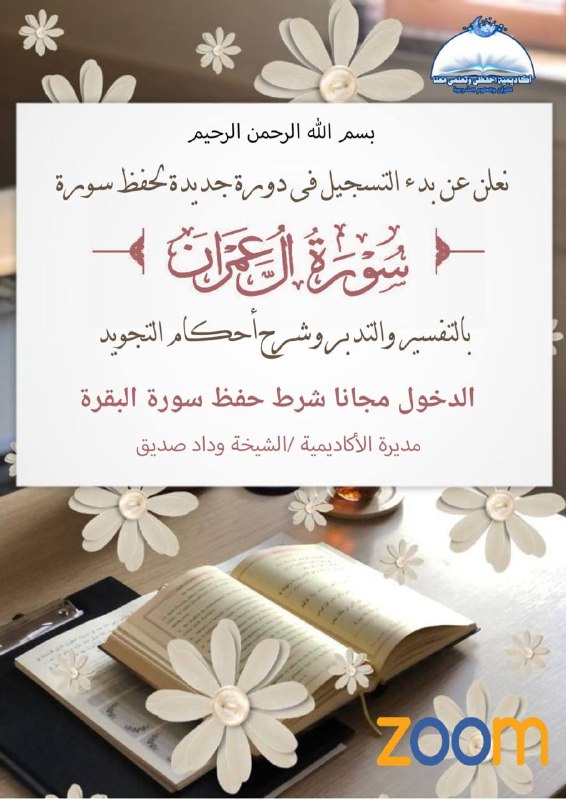 أكاديمية احفظي وتعلمي معنا
للقرآن والعلوم الشرعية
بسم الله الرحمن الرحيم
نعلن عن بدء التسجيل في دورة جديدة لحفظ سورة
سُورَةُ آلِ عِمْرَانَ
بالتفسير والتدبر وشرح أحكام التجويد
الدخول مجانا شرط حفظ سورة البقرة
مديرة الأكاديمية /الشيخة وداد صديق
zoom